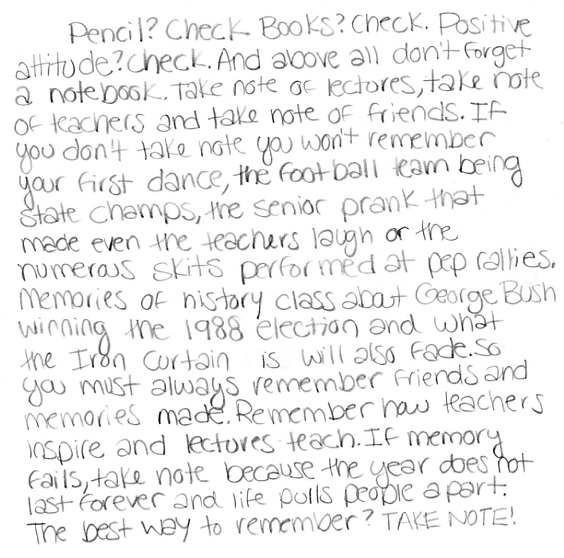 Pencil? Check. Books? Check. Positive
attitude? Check. And above all don't forget
a notebook. Take note of lectures, take note
of teachers and take note of friends. If
you don't take note you won't remember
your first dance, the football team being
state champs, the senior prank that
made even the teachers laugh or the
numerous skits performed at pep rallies.
Memories of history class about George Bush
winning the 1988 election and what
the Iron Curtain is will also fade. So
you must always remember friends and
memories made. Remember how teachers
inspire and lectures teach. If memory
fails, take note because the year does not
last forever and life pulls people apart.
The best way to remember? TAKE NOTE!